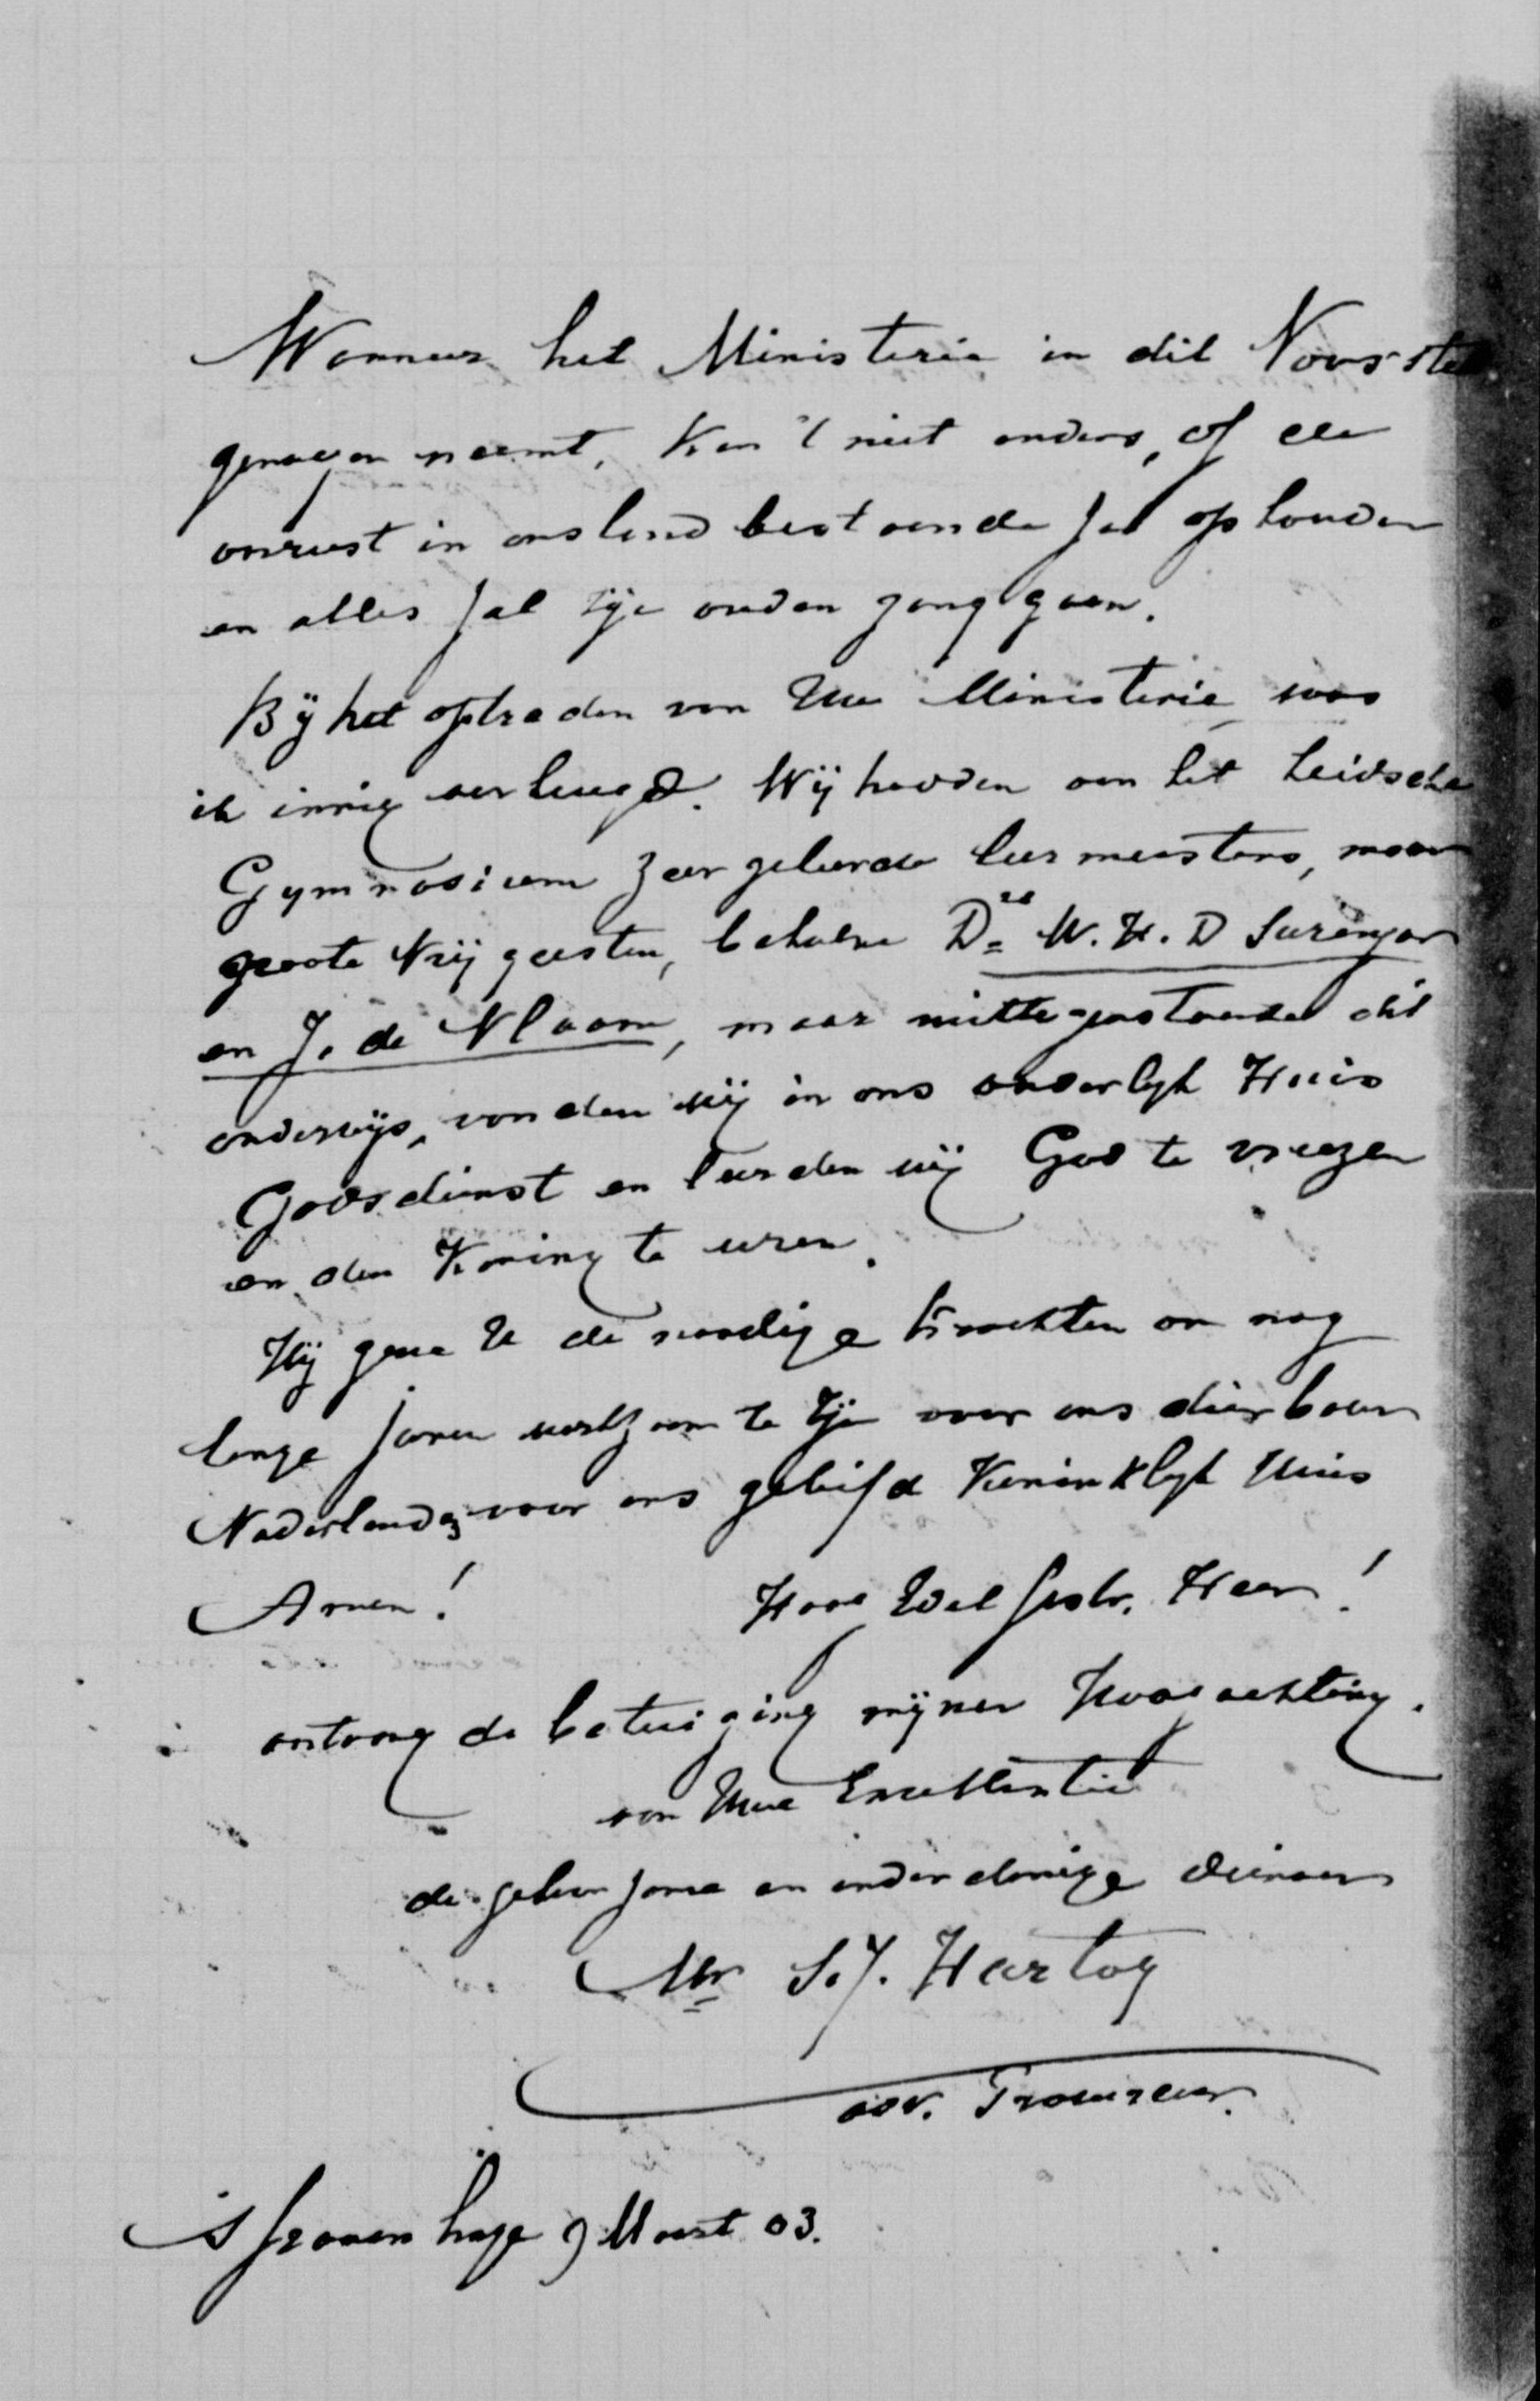 Wanneer het Ministerie in dit Voorstel
genoegen neemt, kan 't niet anders, of de
onrust in ons land bestaande zal ophouden
en alles zal zijn ouden gang gaan.
Bij het optreden van Uw Ministerie was
ik innig verheugd. Wij hadden aan het Leidsche
Gymnasium zeer geleerde leermeesters, maar
groote Vrijgeesten, behalve Drs W. H. D Suringar
en J. de Vlaam, maar niettegenstaande dit
onderwijs, vonden wij in ons ouderlijk Huis
Godsdienst en leerden wij God te vreezen
en den Koning te eeren.
Hij geve U de noodige krachten om nog
lange jaren werkzaam te zijn voor ons dierbaar
Nederland, voor ons geliefd Koninklijk Huis
Amen! HoogEdelGestr. Heer!
ontvang de betuiging mijner Hoogachting.
van Uwe Excellentie
de gehoorzame en onderdanige dienaar
Mr S. J. Hartog
adv. Procureur.
'sGravenhage 9 Maart 03.